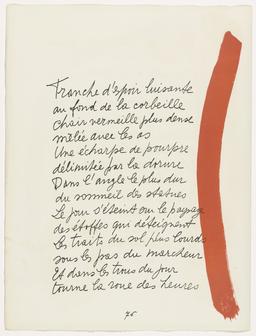 Tranche d'espoir luisante
au fond de la corbeille
Chair vermeille plus dense
mêlée avec les os
Une écharpe de pourpre
délimitée par la dorure
Dans l'angle le plus dur
du sommeil des statues
Le jour s'éteint sur le paysage
des étoffes qui déteignent
les traits du sol plus lourds
sous les pas du marcheur
Et dans les trous du jour
tourne la roue des heures
76